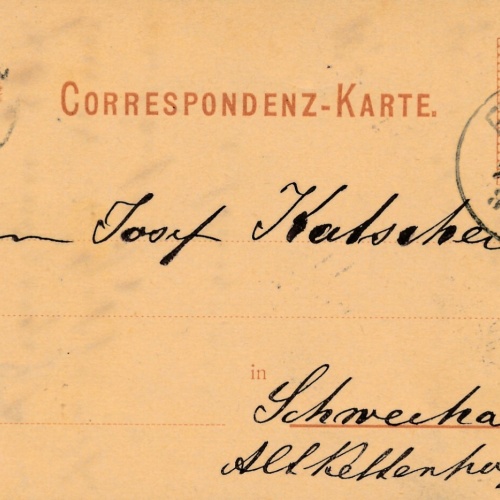 CORRESPONDENZ-KARTE.
Josef Katscher
in
Schwecha
Altkettenho